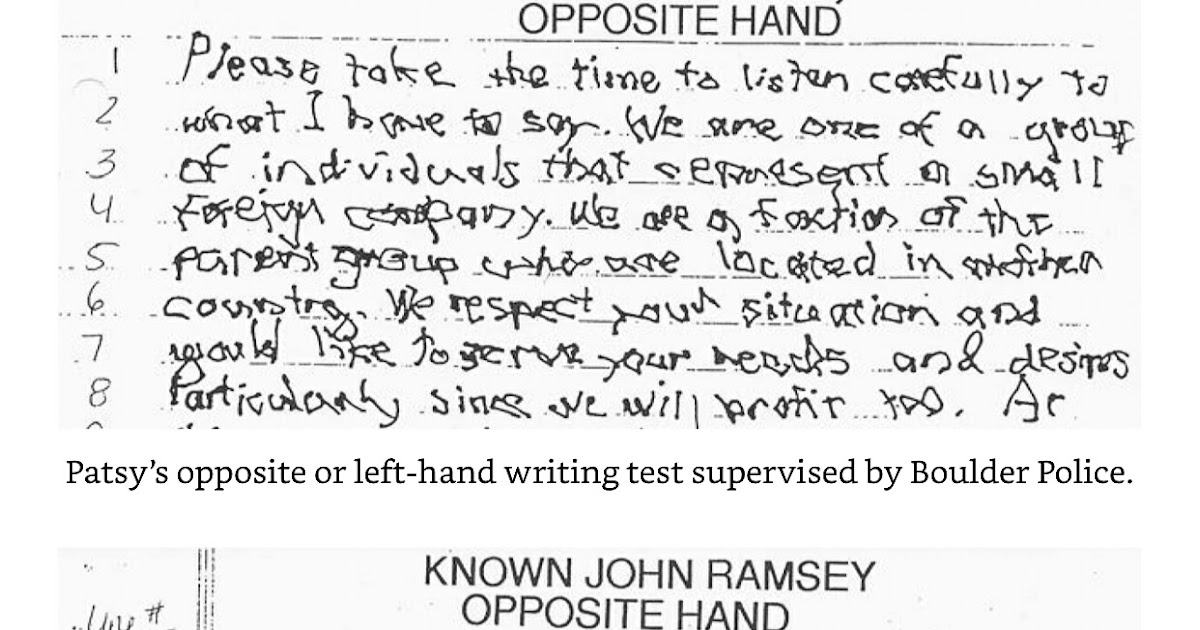 OPPOSITE HAND
1 Please take the time to listen carefully to
2 what I have to say. We are one of a group
3 of individuals that represent a small
4 foreign company. We are a faction of the
5 parent group who are located in another
6 country. We respect your situation and
7 would like to serve your needs and desires
8 Particularly since we will profit too. At
Patsy’s opposite or left-hand writing test supervised by Boulder Police.
KNOWN JOHN RAMSEY
OPPOSITE HAND
Line #